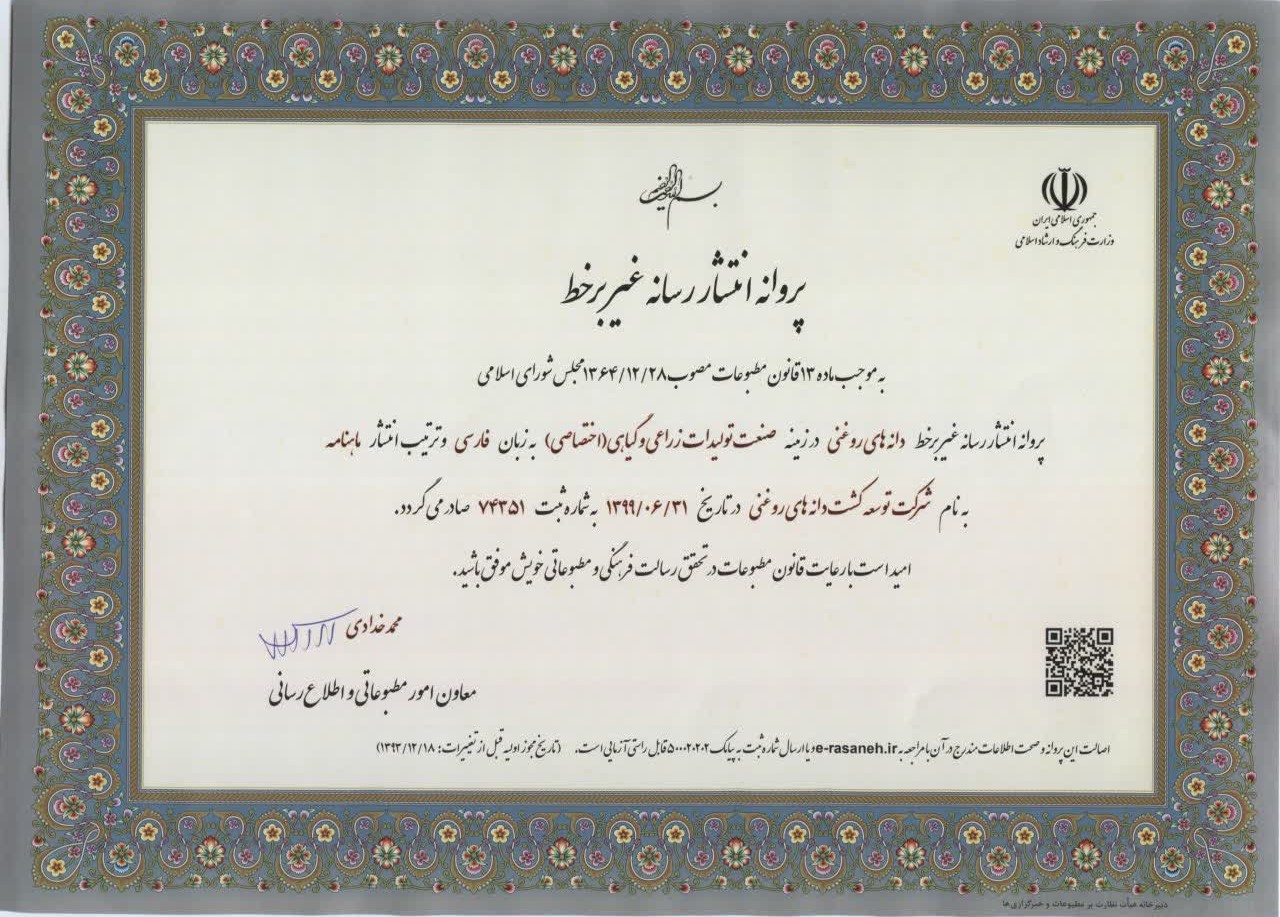 بسم الله الرحمن الرحیم
جمهوری اسلامی ایران
وزارت فرهنگ و ارشاد اسلامی
پروانه انتشار رسانه غیر برخط
به موجب ماده ۱۳ قانون مطبوعات مصوب ۱۳۶۴/۱۲/۲۸ مجلس شورای اسلامی
پروانه انتشار رسانه غیر برخط دانه های روغنی در زمینه صنعت تولیدات زراعی و گیاهی (اختصاصی) به زبان فارسی و ترتیب انتشار ماهنامه
به نام شرکت توسعه کشت دانه های روغنی در تاریخ ۱۳۹۹/۰۶/۳۱ به شماره ثبت ۷۴۳۵۱ صادر می گردد.
امید است با رعایت قانون مطبوعات در تحقق رسالت فرهنگی و مطبوعاتی خویش موفق باشید.
محمد خدادی
معاون امور مطبوعاتی و اطلاع رسانی
اصالت این پروانه و صحت اطلاعات مندرج در آن با مراجعه به e-rasaneh.ir و یا ارسال شماره ثبت به پیامک ۵۰۰۰۲۰۲۰۲ قابل راستی آزمایی است. (تاریخ مجوز اولیه قبل از تغییرات: ۱۳۹۳/۱۲/۱۸)
دبیرخانه هیأت نظارت بر مطبوعات و خبرگزاری ها